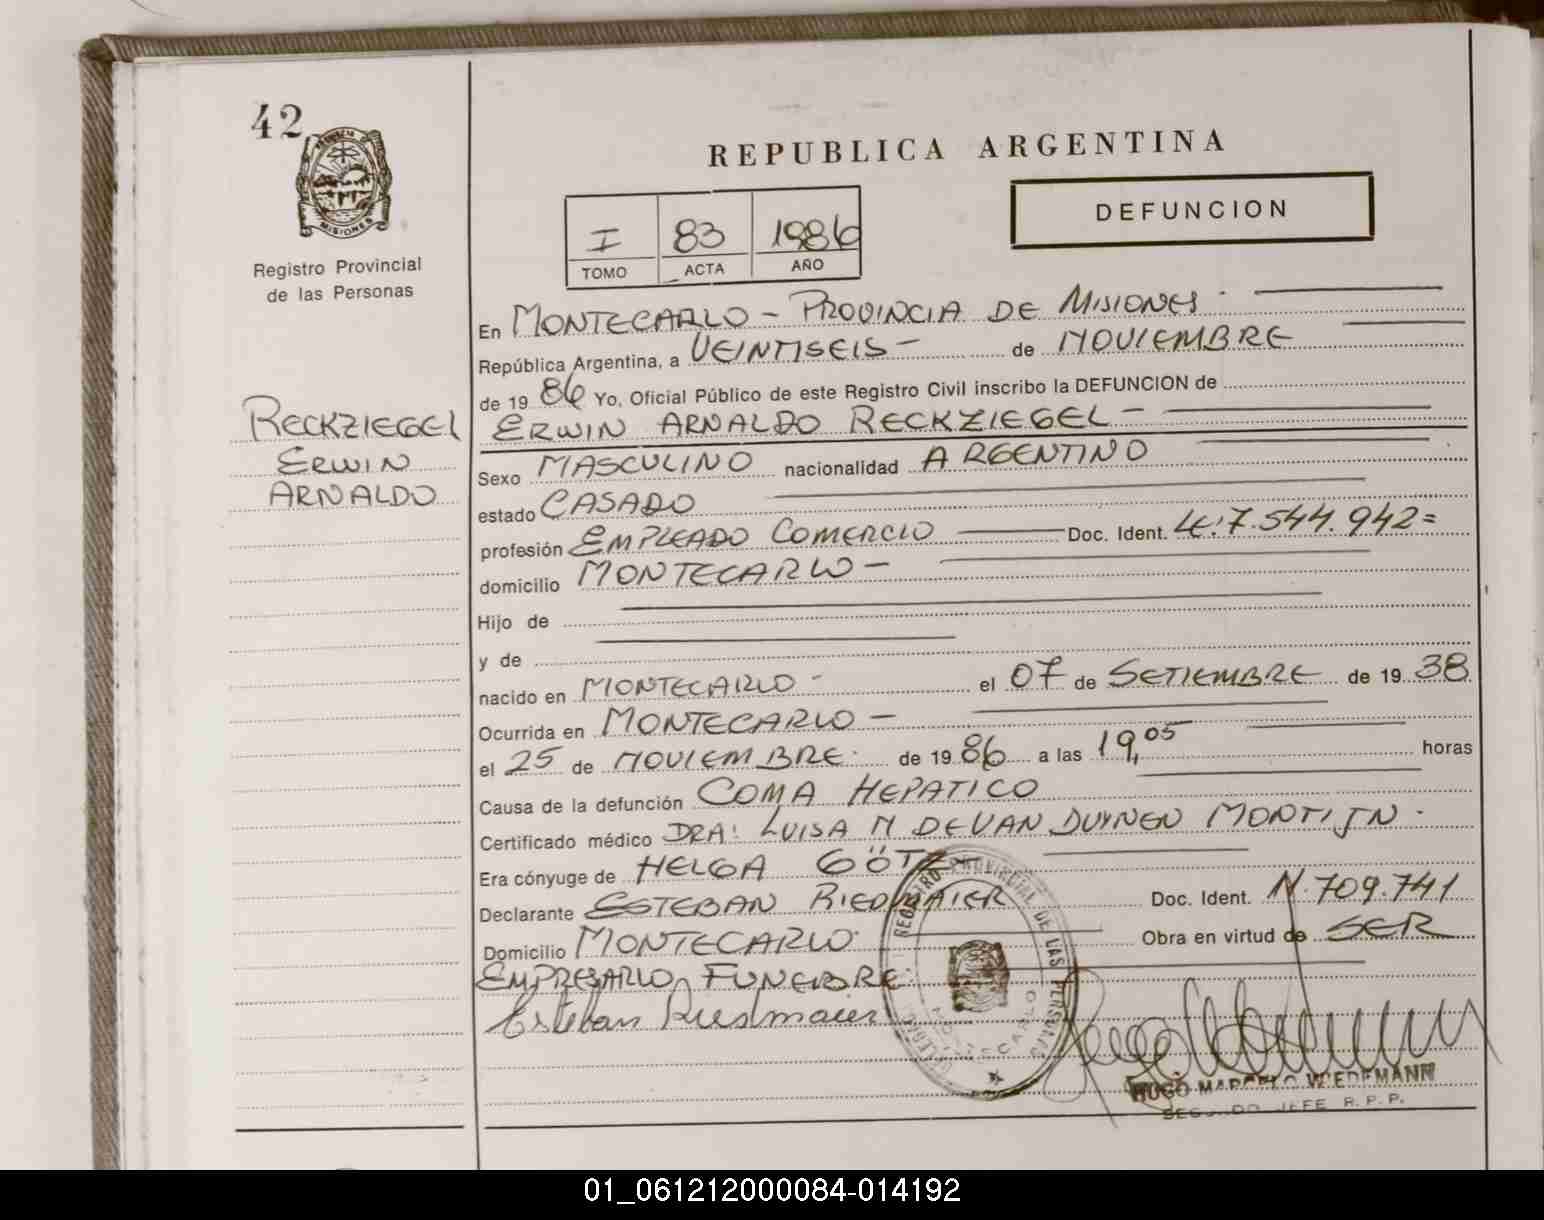 42
PROVINCIA DE
MISIONES
Registro Provincial
de las Personas
RECKZIEGEL
ERWIN
ARNALDO
REPUBLICA ARGENTINA
I 83 1986
TOMO ACTA AÑO
DEFUNCION
En MONTECARLO - PROVINCIA DE MISIONES -
República Argentina, a VEINTISEIS - de NOVIEMBRE
de 19 86 Yo, Oficial Público de este Registro Civil inscribo la DEFUNCION de
ERWIN ARNALDO RECKZIEGEL -
Sexo MASCULINO nacionalidad ARGENTINO
estado CASADO
profesión EMPLEADO COMERCIO Doc. Ident. L.E: 7.544.942=
domicilio MONTECARLO -
Hijo de
y de
nacido en MONTECARLO - el 07 de SETIEMBRE de 19 38
Ocurrida en MONTECARLO -
el 25 de NOVIEMBRE. de 19 86 a las 19,05 horas
Causa de la defunción COMA HEPATICO
Certificado médico DRA: LUISA M DEVAN DUYNEN MONTIJN -
Era cónyuge de HELGA GÖTZ
Declarante ESTEBAN RIEDMAIER Doc. Ident. N. 709.741
Domicilio MONTECARLO. Obra en virtud de SER
EMPRESARIO FUNEBRE.
Esteban Riedmaier
REGISTRO PROVINCIAL DE LAS PERSONAS
MONTECARLO
HUGO MARCELO WIEDEMANN
SEGUNDO JEFE R. P. P.
01_061212000084-014192